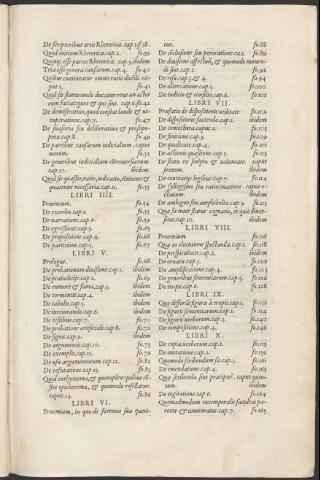 De scriptoribus artis Rhetoricæ. cap.1. fo.38.
Quod initium Rhetoricæ.cap.2. fo.39
Quinqȝ esse partes Rhetoricæ. cap.3. ibidem
Tria esse genera causarum.cap.4. fo.40
Quibus contineatur omnis ratio dicēdi. ca-
put 5. fo.41
Quid sit status: unde ducatur: reus an actor
eum faciat: quot & qui sint. cap.6. fo.42
De demonstratiuo, quod constat laude & ui-
tuperatione.cap.7. fo.47
De suasoria seu deliberatiua & prosopo-
pœia.cap.8. fo.49
De partibus causarum iudicialium . caput
nonum. fo.52
De generibus iudicialium
cap.10. ibidem
Quid sit quæstio, ratio, iudicatio, &
quatenus necessaria.cap.11. fo.53
LIBRI IIII.
Proœmium. fo.54
De exordio.cap.1. fo.55
De narratione.cap.2. fo.59
De egressione.cap.3. fo.65
De propositione.cap.4. fo.66
De partitione.cap.5. fo.67
LIBRI V.
Prologus. fo.68
De probationum diuisione.cap.1. ibidem
De præiudicijs.cap.2. fo.69
De rumore & fama.cap.3. ibidem
De tormentis.cap.4. ibidem
De tabulis.cap.5. ibidem
De iureiurando.cap.6. ibidem
De testibus.cap.7. fo.71
De probatione artificiali.cap.8. fo.72
De signis.cap.9. ibidem
De argumentis.cap.10. fo.73
De exemplis.cap.11. fo.79
De usu argumentorum.cap.12. fo.82
De refutatione.cap.13. fo.83
Quid enthymema, & quotuplex: quibus cō-
stet epichirema, & quomodo refellatur.
caput.14. fo.86
LIBRI VI.
Proœmium, in quo de fortuna sua queri-
tur. fo.88
De cōclusione seu peroratione.ca.1. fo.89
De diuisione affectuū, & quomodo mouen-
di sint.cap.2. fo.92
De risu.cap.3. & 4. fo.94
De altercatione.cap.5. fo.100
De iudicio & consilio.cap.6. fo.101
LIBRI VII.
Præfatio de dispositionis utilitate fo.102
De dispositione facienda.cap.1. ibidem
De coniectura.caput.2. fo.105
De finitione.cap.3. fo.109
De qualitate.cap.4. fo.111
De actionis quæstione.cap.5. fo.113
De statu ex scripto & uoluntate. caput
sextum. ibidem
De contrarijs legibus.cap.7. fo.114
De syllogismo seu ratiocinatione. caput o-
ctauum. ibidem
De ambiguo seu amphibolia.cap.9. fo.115
Quæ sit inter status cognatio, et quæ diuer-
sitas.cap.10. ibidem
LIBRI VIII.
Proœmium fo.116
Quæ in elocutione spectanda.cap.1. fo.118
De perspicuitate.cap.2. ibidem
De ornatu.cap.3. fo.120
De amplificatione.cap.4. fo.123
De generibus sententiarum.cap.5. fo.124
De tropis.cap.6. fo.128
LIBRI IX.
Quo differāt figuræ à tropis.cap.1. fo.132
De figuris sententiarum.cap.2. fo.134
De figuris uerborum.cap.3. fo.140
De compositione.cap.4. fo.146
LIBRI X.
De copia uerborum.cap.1. fo.155
De imitatione.cap.2. fo.159
Quomodo scribendum sit.cap.3. fo.161
De emendatione.cap.4. fo.163
Quæ scribenda sint præcipuè. caput quin-
tum. ibidem
De cogitatione.cap.6. ibidem
Quemadmodum extemporalis facultas pa-
retur & contineatur.cap.7. fo.165